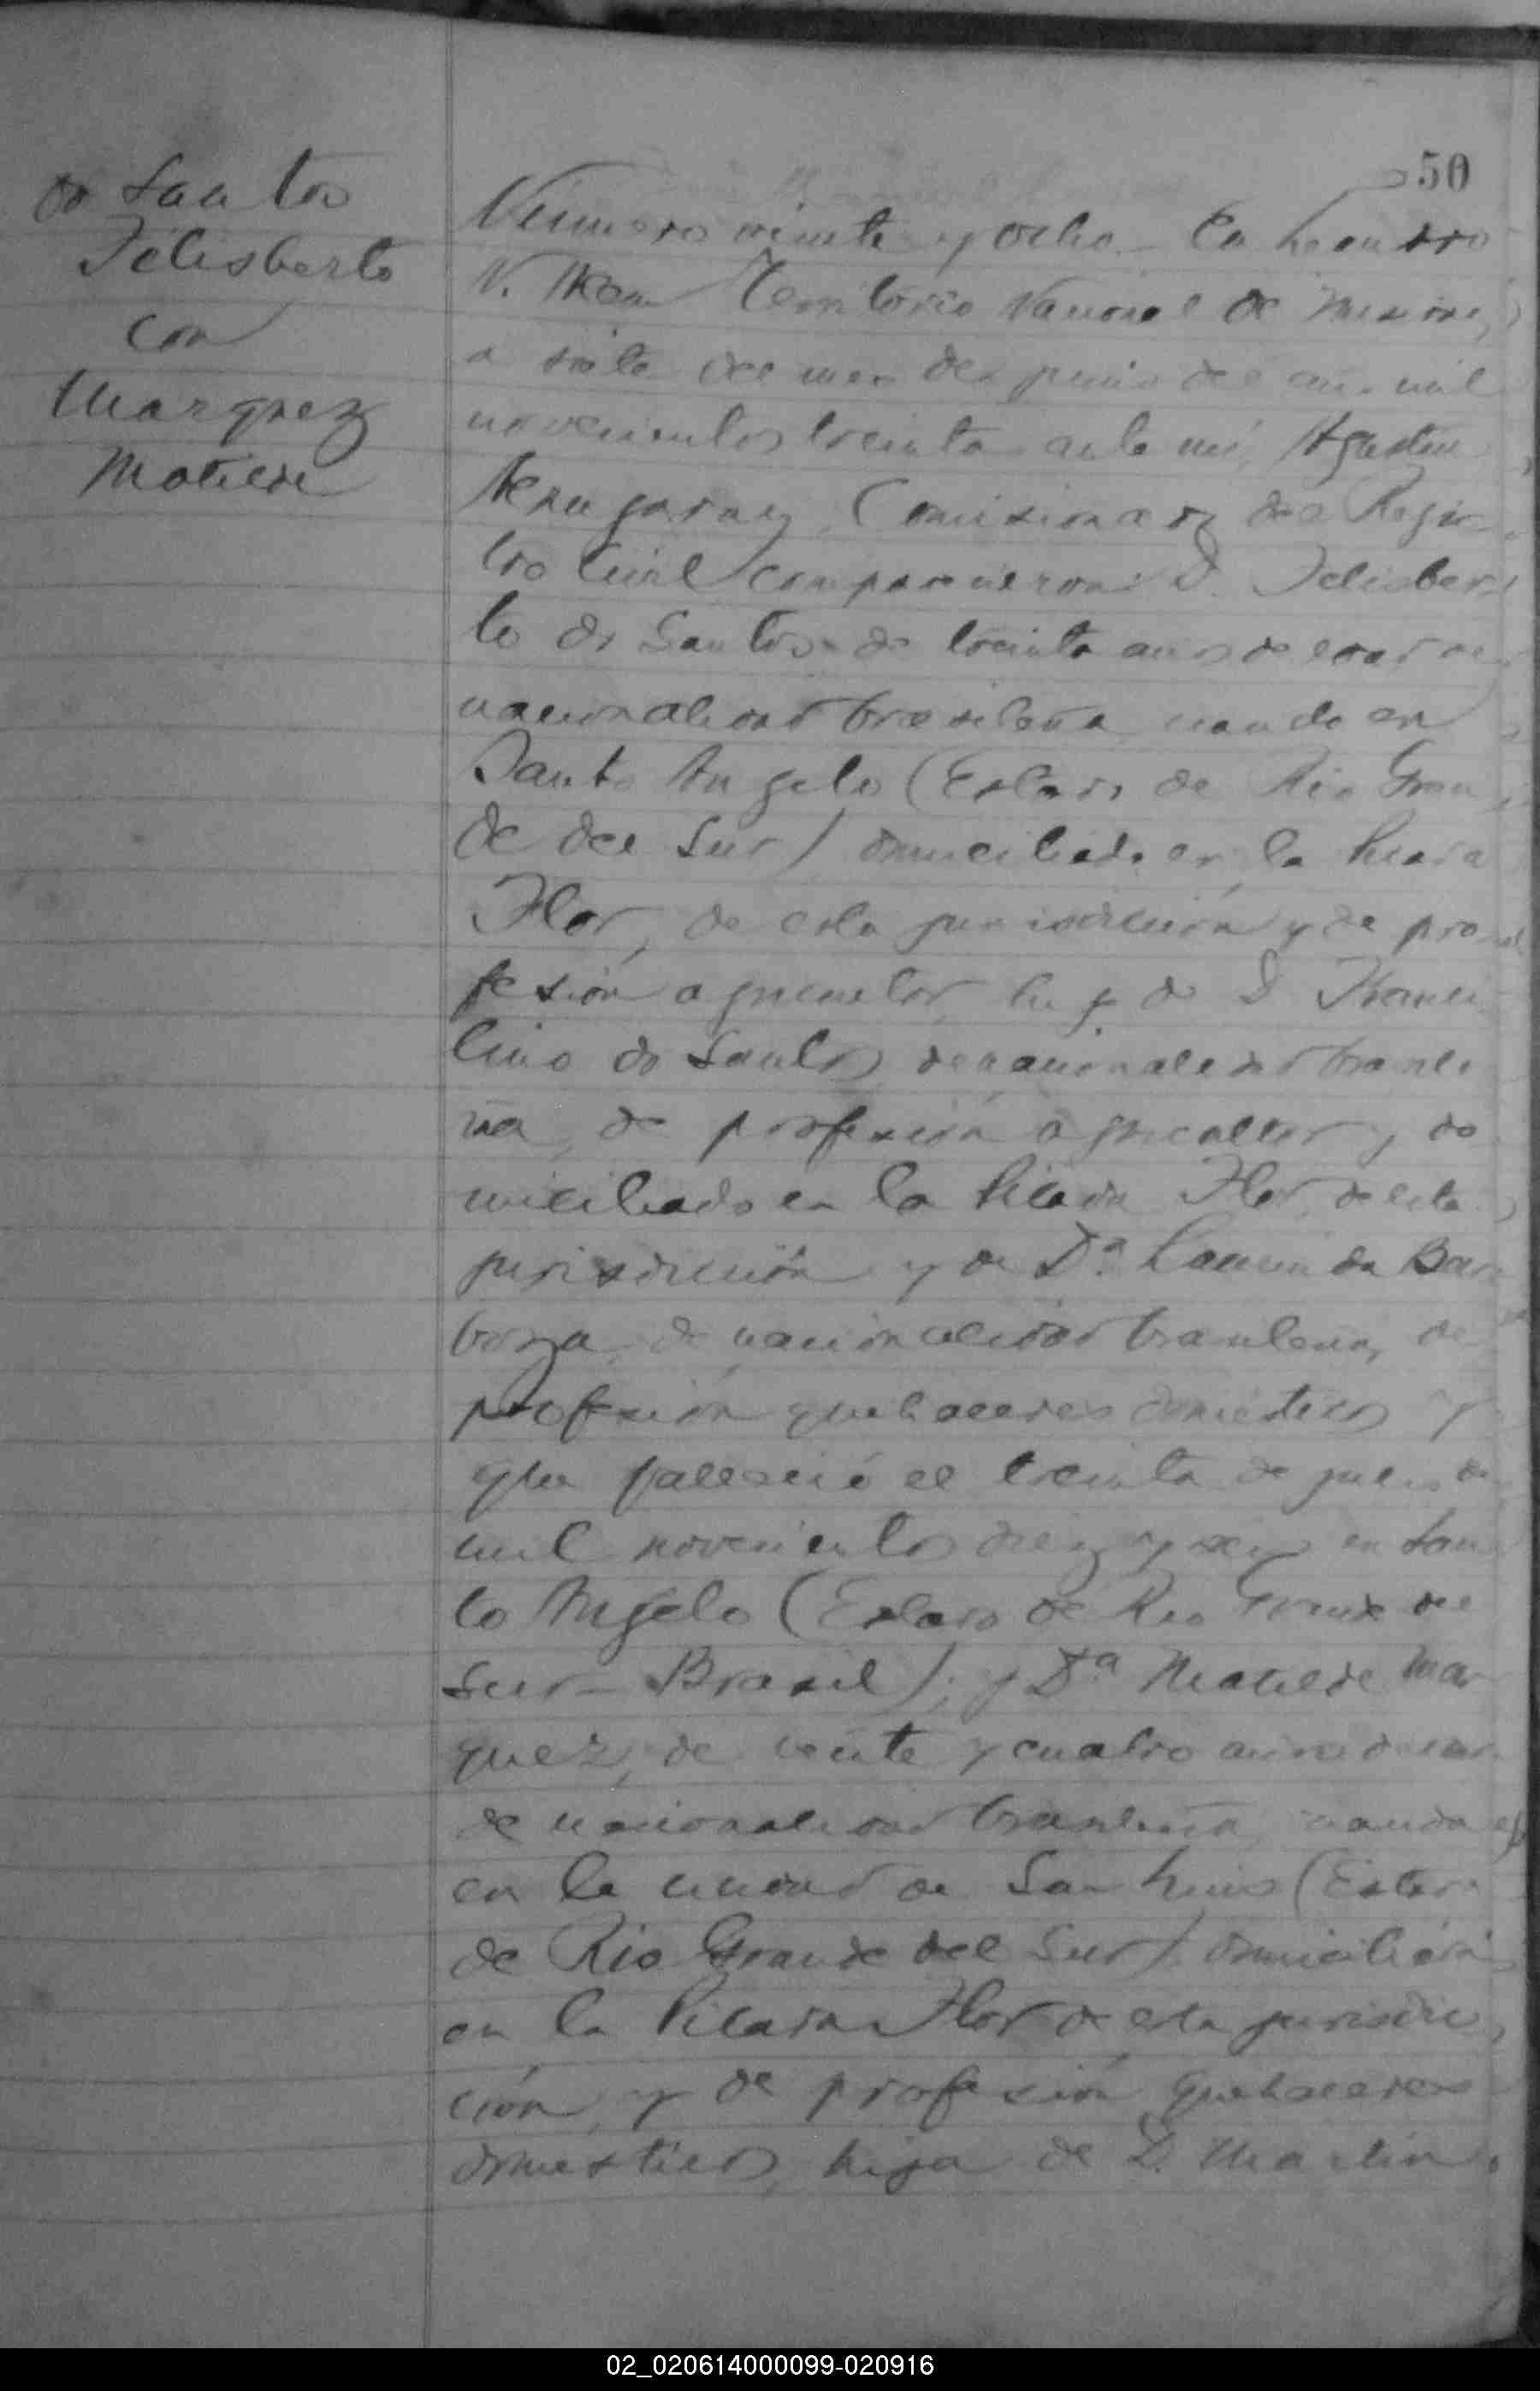 50
do Santos
Felisberto
con
Marquez
Matilde
Número veinte y ocho. En Leandro
N. Alem Territorio Nacional de Misiones,
a siete del mes de junio del año mil
novecientos treinta ante mí, Agustin
Comisionado del Regis-
tro Civil comparecieron: D. Felisber-
to do Santos de treinta años de edad de
nacionalidad brasileña nacido en
Santo Angelo (Estado de Rio Gran
de del Sur) domiciliado en la Picada
Flor, de esta jurisdicción y de pro-
fesión agricultor hijo de D.
lino do Santos de nacionalidad brasile
ña, de profesión agricultor y do
miciliado en la Picada Flor, de esta
jurisdicción y de Da. Laurinda Bar
boza, de nacionalidad brasileña, de
profesión quehaceres domésticos y
que falleció el treinta de de
mil novecientos diez y seis en San
to Angelo (Estado de Rio Grande del
Sur - Brasil); y Da Matilde Mar
quez, de veinte y cuatro años de edad
de nacionalidad brasileña, nacida
en la ciudad de San Luis (Estado
de Rio Grande del Sur) domiciliada
en la Picada Flor de esta jurisdic
ción, y de profesión quehaceres
domesticos, hija de D. Martin
02_020614000099-020916